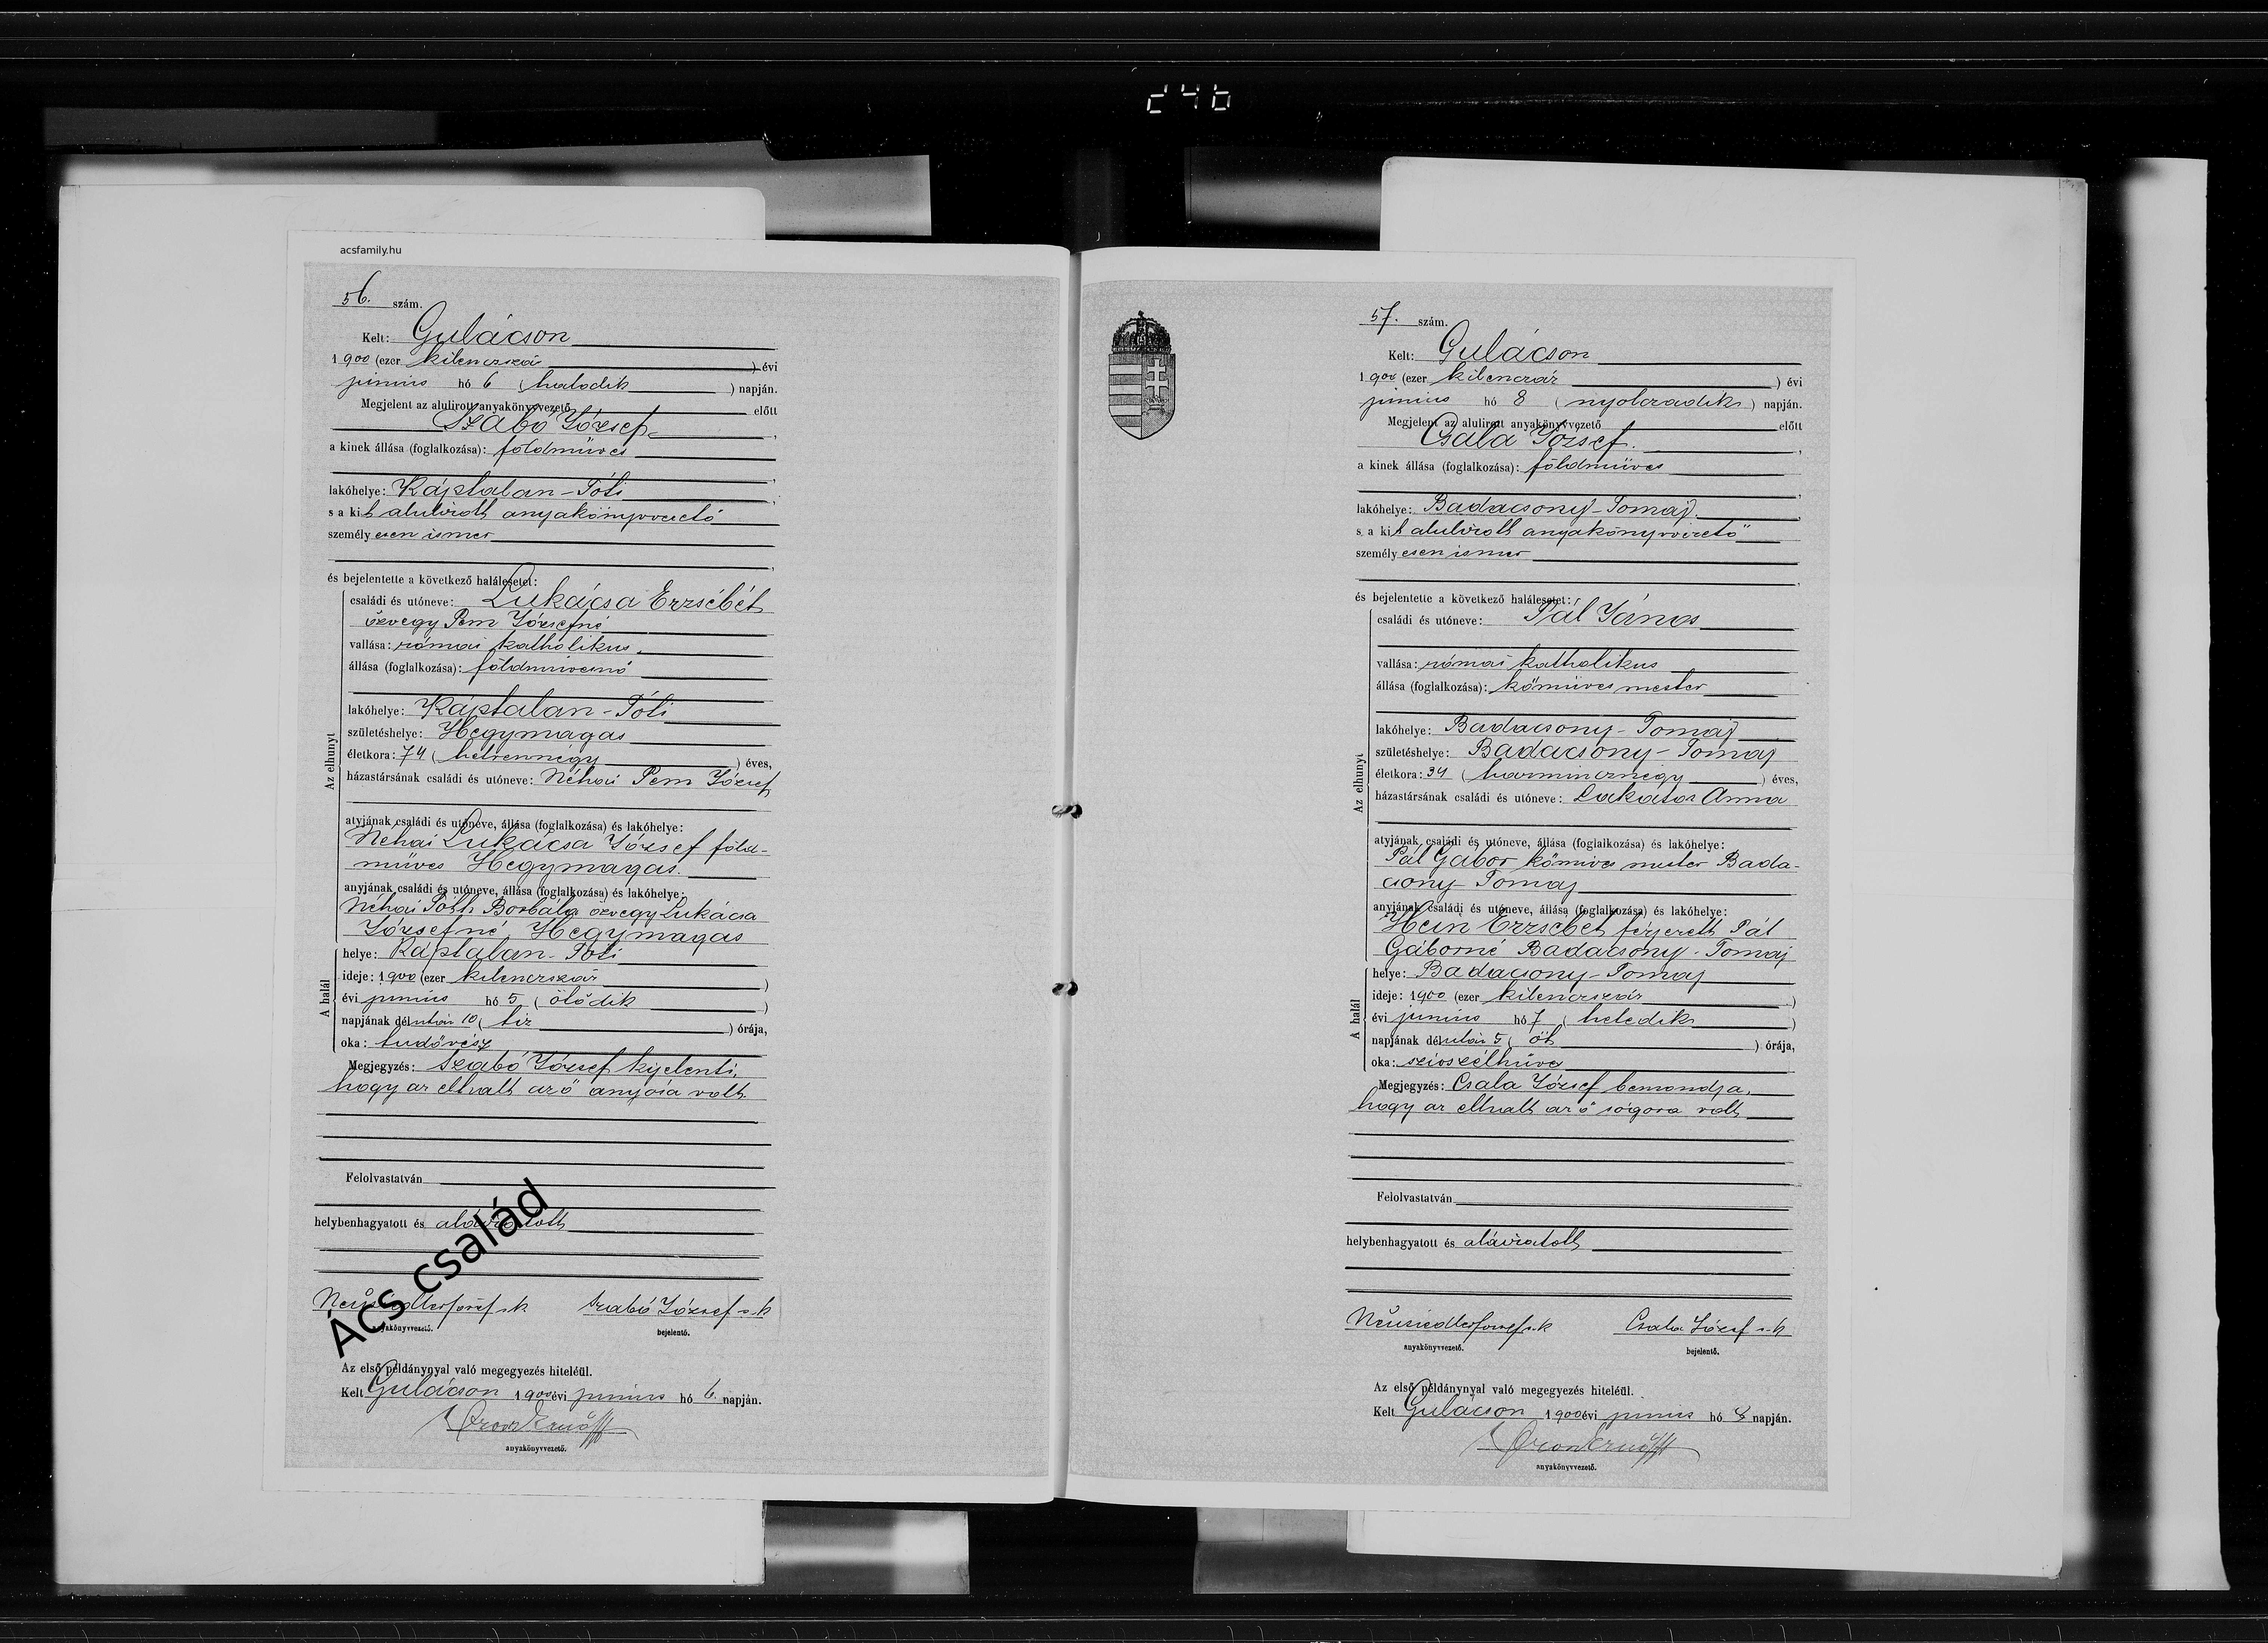 246
acsfamily.hu
56. szám.
Kelt: Gulácson
1900 (ezer kilenczszáz) évi
junius hó 6 (hatodik) napján.
Megjelent az alulirott anyakönyvvezető előtt
Szabó József,
a kinek állása (foglalkozása): földmüves
lakóhelye: Káptalan-Tóti
s a kit alulirott anyakönyvvezető
személyesen ismer
és bejelentette a következő halálesetet:
Az elhunyt
családi és utóneve: Lukácsa Erzsébet
özvegy Pem Józsefné
vallása: római katholikus
állása (foglalkozása): földmüvesnő
lakóhelye: Káptalan-Tóti
születéshelye: Hegymagas
életkora: 74 (hetvennégy) éves,
házastársának családi és utóneve: Néhai Pem József
atyjának családi és utóneve, állása (foglalkozása) és lakóhelye:
Néhai Lukácsa József föld-
müves Hegymagas.
anyjának családi és utóneve, állása (foglalkozása) és lakóhelye:
Néhai Tóth Borbála özvegy Lukácsa
Józsefné Hegymagas
A halál
helye: Káptalan-Tóti
ideje: 1900 (ezer kilenczszáz)
évi junius hó 5 (ötödik)
napjának délután 10 (tiz) órája,
oka: tüdővész
Megjegyzés: Szabó József kijelenti,
hogy az elhalt az ő anyósa volt.
Felolvastatván
helybenhagyatott és aláiratott
Neusiedler József sk
anyakönyvvezető.
Szabó József s.k
bejelentő.
Ács család
Az első példánynyal való megegyezés hiteléül.
Kelt Gulácson 1900 évi junius hó 6. napján.
anyakönyvvezető.
57. szám.
Kelt: Gulácson
1900 (ezer kilenczszáz) évi
junius hó 8 (nyolczadik) napján.
Megjelent az alulirott anyakönyvvezető előtt
Csala József.
a kinek állása (foglalkozása): földmüves
lakóhelye: Badacsony-Tomaj.
s a kit alulirott anyakönyvvezető
személyesen ismer
és bejelentette a következő halálesetet:
Az elhunyt
családi és utóneve: Pál János
vallása: római katholikus
állása (foglalkozása): kőmüves mester
lakóhelye: Badacsony-Tomaj
születéshelye: Badacsony-Tomaj
életkora: 34 (harmincznégy) éves,
házastársának családi és utóneve: Lakatos Anna
atyjának családi és utóneve, állása (foglalkozása) és lakóhelye:
Pál Gábor kőmüves mester Bada-
csony-Tomaj
anyjának családi és utóneve, állása (foglalkozása) és lakóhelye:
Hein Erzsébet férjezett Pál
Gáborné Badacsony-Tomaj
A halál
helye: Badacsony-Tomaj
ideje: 1900 (ezer kilenczszáz)
évi junius hó 7 (hetedik)
napjának délután 5 (öt) órája,
oka: szivszélhüdés
Megjegyzés: Csala József bemondja,
hogy az elhalt az ő sógora volt
Felolvastatván
helybenhagyatott és aláiratott
Neusiedler József s.k
anyakönyvvezető.
Csala József s.k
bejelentő.
Az első példánynyal való megegyezés hiteléül.
Kelt Gulácson 1900 évi junius hó 8 napján.
anyakönyvvezető.